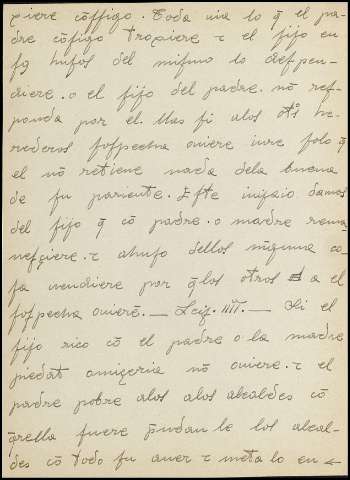 xiere cõssigo. Toda uia lo q̃ el pa-
dre cõsigo troxiere ⁊ el fijo en
del mismo lo despen-
diere. o el fijo del padre. nõ res-
ponda por el. Mas si alos otͦs he-
rederos sospecha ouiere iure solo q̃
el nõ retiene nada dela buena
de su pariente. Este iuizio damos
del fijo q̃ cõ padre. o madre rema-
nesçiere. ⁊ dellos nĩguna co-
sa uendiere por q̃ los otros a el
sospecha ouierẽ. — Leij. IIII. — Si el
fijo rico cõ el padre o la madre
piedat nõ ouiere. ⁊ el
padre pobre alos alos alcaldes cõ
q̃rella fuere p̃ndan le los alcal-
des cõ todo su auer ⁊ meta lo en